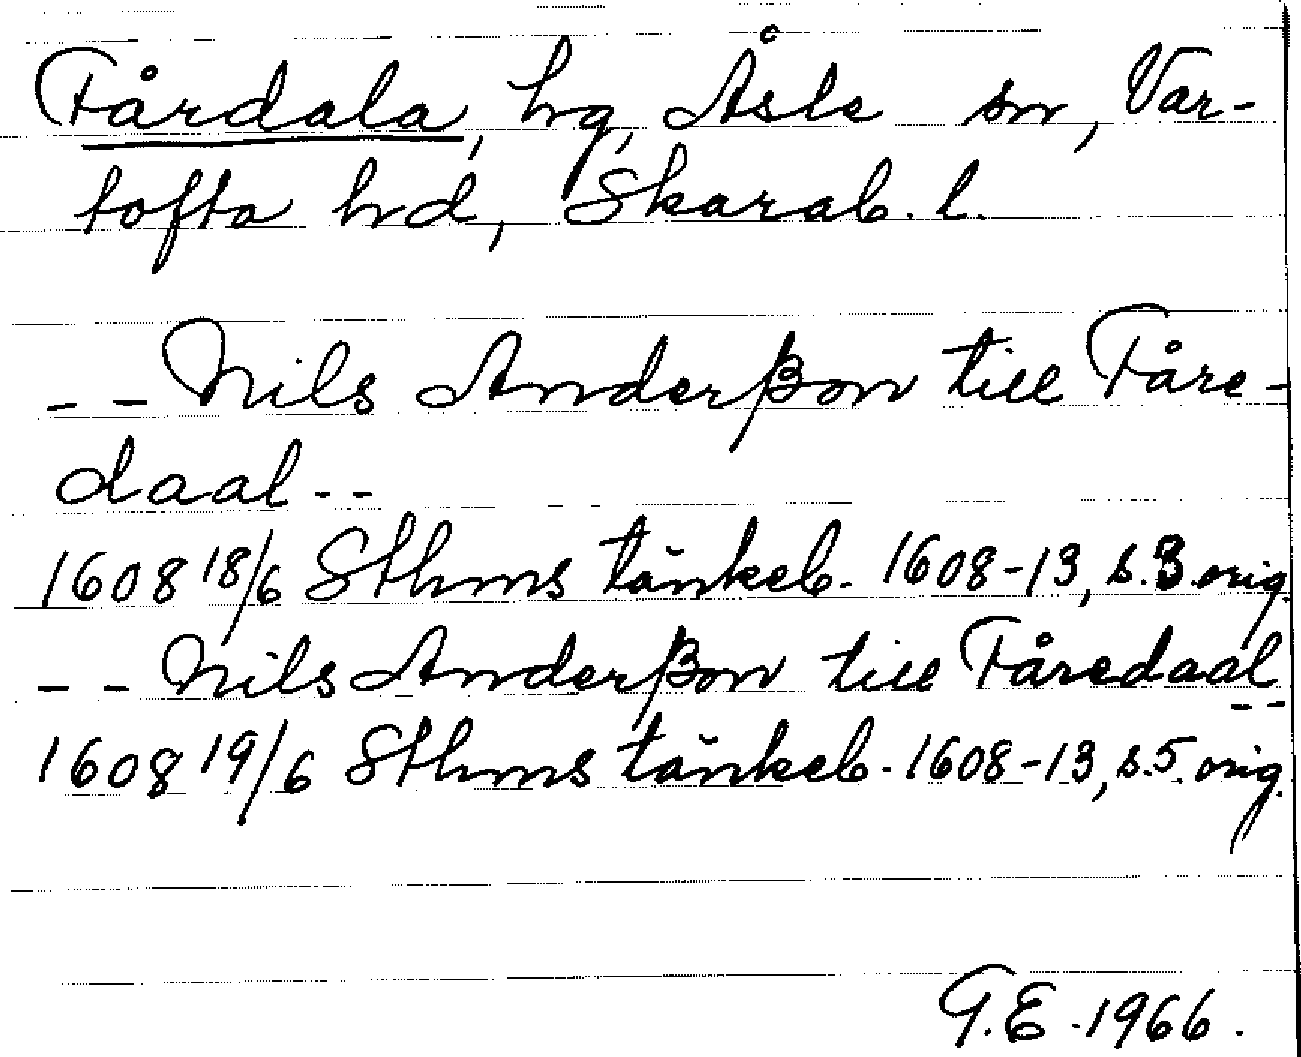 Fårdala, hg, Åsle sn, Var-
tofta hd, Skarab. l.
- - Nils Anderßon till Fåre-
daal - -
1608 18/6 Sthms tänkeb. 1608-13, s. 3. orig.
- - Nils Anderßon till Fåredaal - -
1608 19/6 Sthms tänkeb. 1608-13, s. 5. orig.
G. E. 1966.